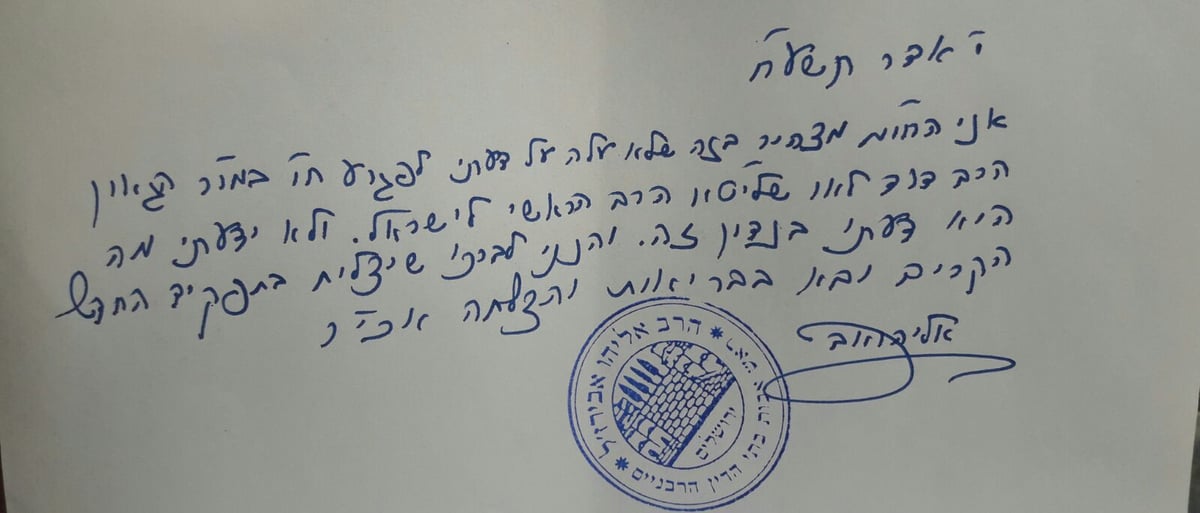 י' אדר תשע"ח
אני הח"מ מצהיר בזה שלא עלה על דעתי לפגוע ח"ו במו"ר הגאון
הרב דוד לאו שליט"א הרב הראשי לישראל. ולא ידעתי מה
היא דעתו בנדין זה. והנני לברכו שיצליח בתפקידו החדש
הקרים ובא בבריאות והצלחה אכי"ר
אליהו
הרב אליהו אביחי
בתי הדין הרבניים
ירושלים